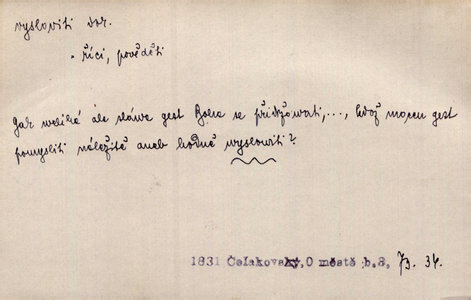 vysloviti dok.
· říci, pověděti
Jak weliká ale sláwa gest Boha se přidržowati,..., kdož mocen gest
pomysliti náležitě aneb hodně wyslowiti?
1831 Čelakovský, O městě b.8, 73. 34.